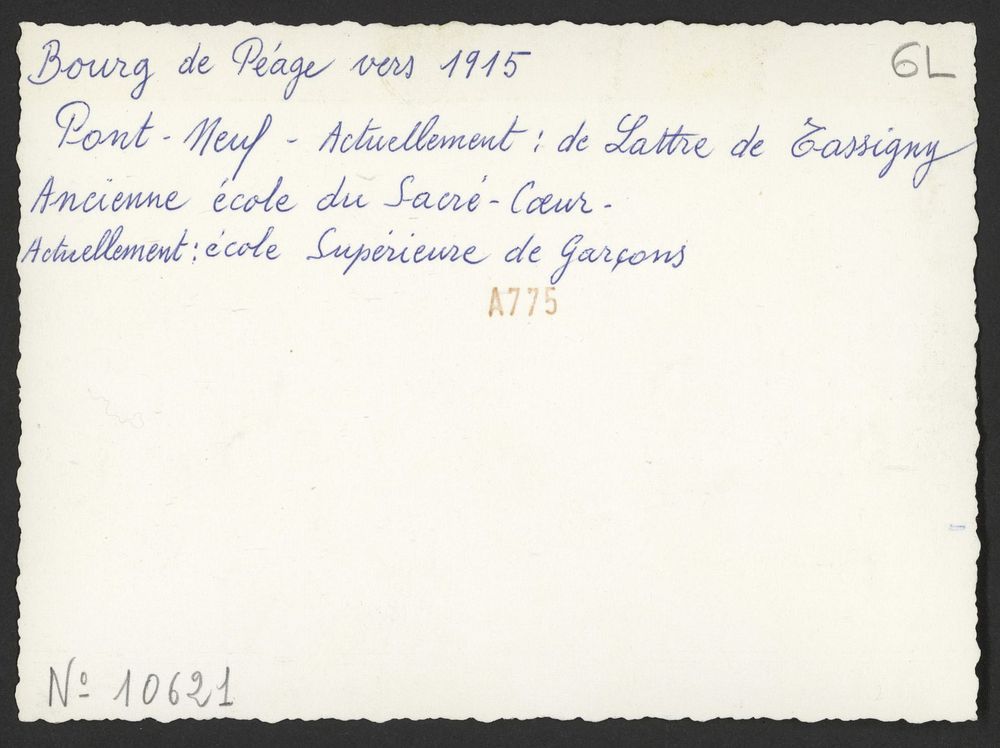 Bourg de Péage vers 1915
6L
Pont - Neuf - Actuellement : de Lattre de Tassigny
Ancienne école du Sacré-Cœur.
Actuellement : école Supérieure de Garçons
A775
Nº 10621